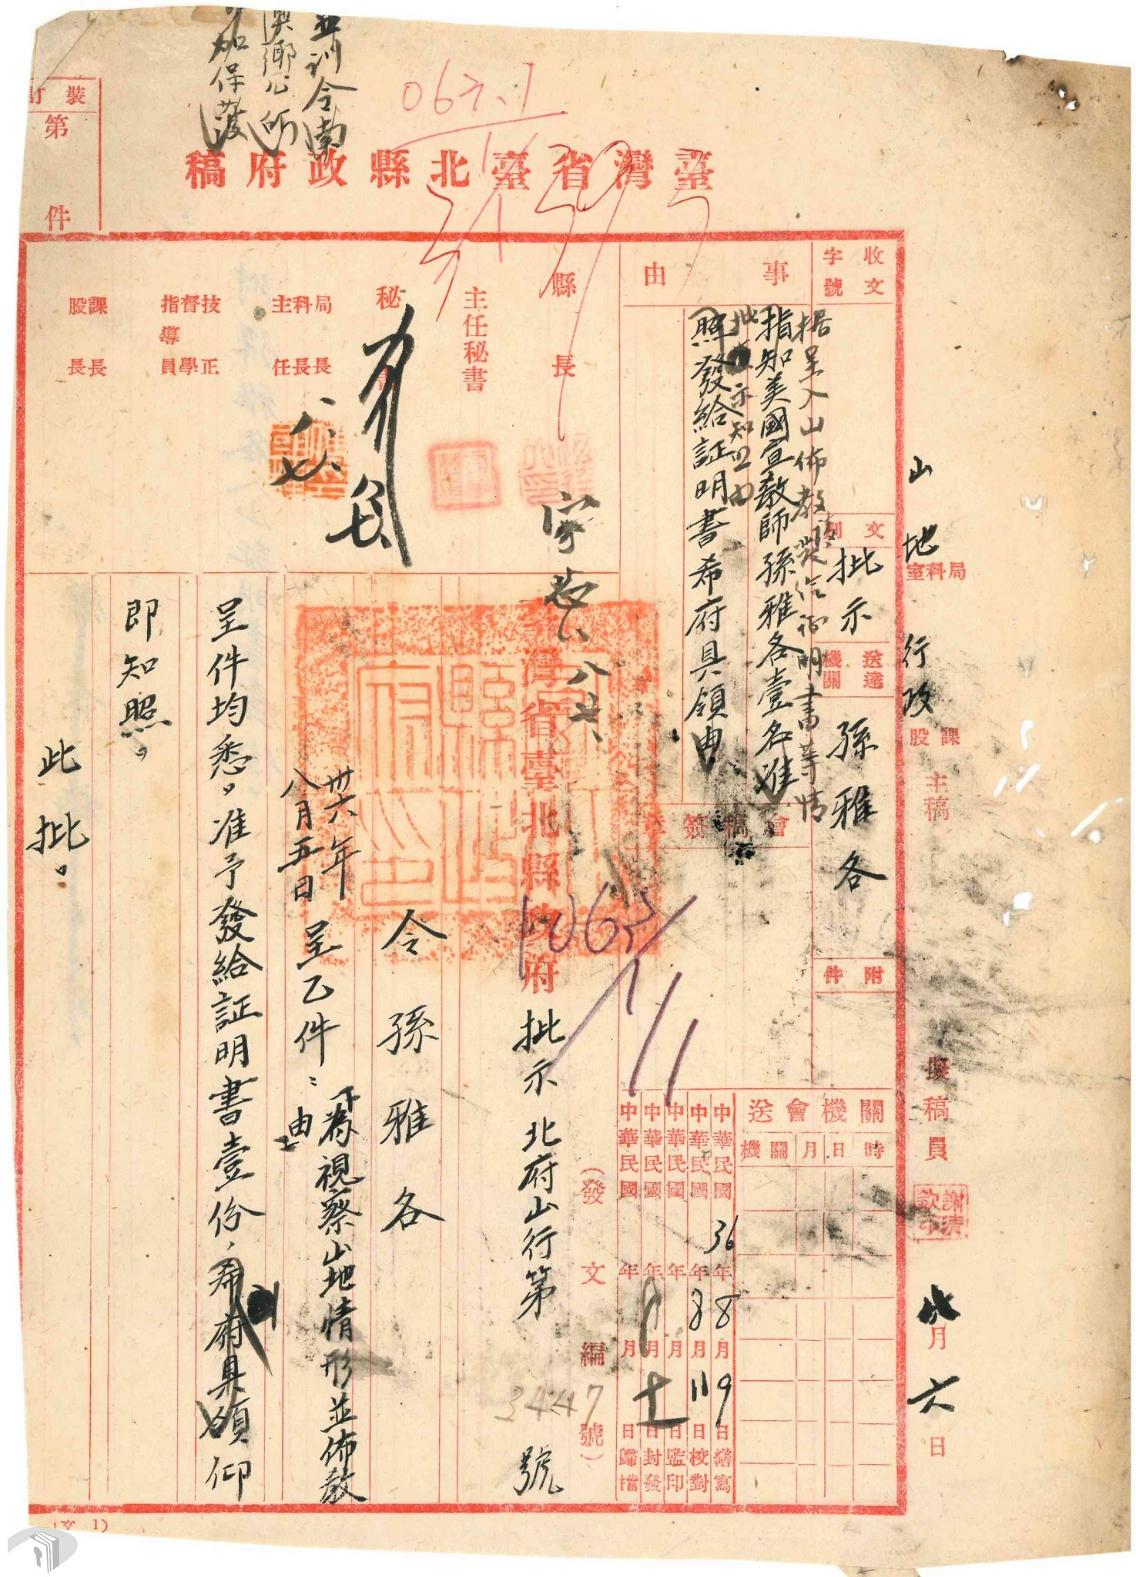 並訓令南
澳鄉公所
加保護
臺灣省臺北縣政府稿
裝訂
第 件
收文
字號
事由
據呈入山佈教發給証明書等情
指知美國宣教師孫雅各壹名准
批 示知照由
照發給証明書希府具領由
文別
批示
送達機關
孫雅各
附件
山地
局科室
行政
課股
主稿
擬稿員
謝清欽印
八月六日
縣長
主任秘書
秘書
局長
科長
主任
技正
督學
指導員
課長
股長
會稿簽章
關機會送
時
日
月
機關
中華民國36年8月9日繕寫
中華民國 年8月11日校對
中華民國 年 月 日監印
中華民國 年 月十一日封發
中華民國 年 月 日歸檔
(發文編號)
臺灣省臺北縣政府批示 北府山行第3447號
令孫雅各
卅六年八月五日呈乙件:為視察山地情形並佈教由
呈件均悉。准予發給証明書壹份,希府具領仰
即知照。
此批。
(文1)